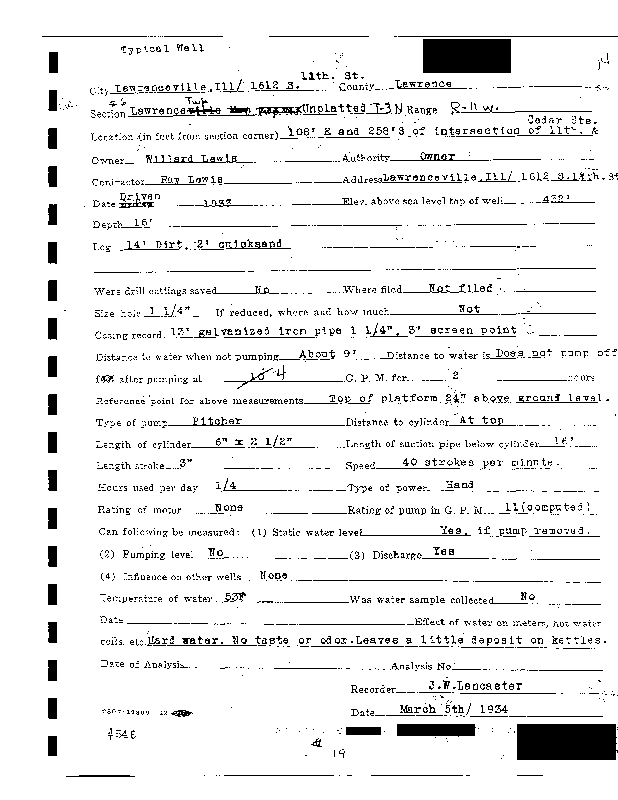 Typical Well
14
11th. St.
City Lawrenceville, Ill/ 1612 S. County Lawrence
Twp
Section Lawrenceville Unplatted T-3N Range R-11w.
Cedar Sts.
Location (in feet from section corner) 108' E and 258'S of intersection of 11th. &
Owner Willard Lewis Authority Owner
Contractor Ray Lewis Address Lawrenceville, Ill/ 1612 S.14th. St
Driven
Date 1933 Elev. above sea level top of well 432'
Depth 16'
Log 14' Dirt, 2' Quicksand
Were drill cuttings saved No Where filed Not filed
Size hole 1 1/4" If reduced, where and how much Not
Casing record 13' galvanized iron pipe 1 1/4", 3' screen point
Distance to water when not pumping About 9' Distance to water is Does not pump off
after pumping at 4 G. P. M. for 2 hours
Reference point for above measurements Top of platform 24" above ground level.
Type of pump Pitcher Distance to cylinder At top
Length of cylinder 6" x 2 1/2" Length of suction pipe below cylinder 16'
Length stroke 3" Speed 40 strokes per minute.
Hours used per day 1/4 Type of power Hand
Rating of motor None Rating of pump in G. P. M. 11(computed)
Can following be measured: (1) Static water level Yes, if pump removed.
(2) Pumping level No (3) Discharge Yes
(4) Influence on other wells None
Temperature of water Was water sample collected No
Date Effect of water on meters, hot water
coils, etc. Hard water. No taste or odor. Leaves a little deposit on kettles.
Date of Analysis Analysis No.
Recorder J.W.Lancaster
Date March 5th/ 1934
19